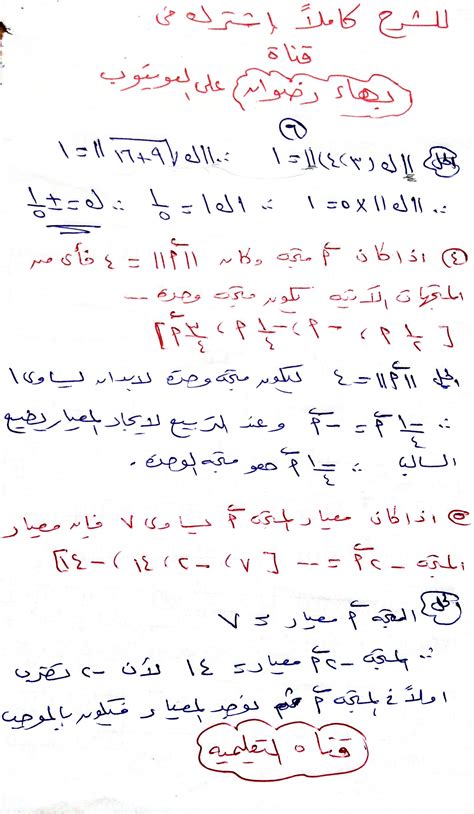 للشرح كاملاً اشترك فى
قناة
بهاء رضوان على اليوتيوب
٦
الحل ||ك(٣،٤)||=١ ∴ ||ك √١٦+٩||=١
∴ ||ك||×٥=١ ∴ |ك|=١/٥ ∴ ك=±١/٥
٤ اذا كان م متجه وكان ||م||=٤ فأى من
المتجهات الآتيه تكون متجه وحدة ---
[١/٢ م ، -م ، -١/٤ م ، ٣/٤ م]
الحل ||م||=٤ لتكون متجه وحدة لابد ان يساوى ١
وعند التربيع لايجاد المعيار يضيع
السالب ∴ -١/٤ م هو متجه الوحدة .
٥ اذا كان معيار المتجه م يساوى ٧ فإن معيار
المتجه -٢م = --- [٧، -٢، ١٤، -١٤]
الحل المتجه م معيار = ٧
∴ المتجه -٢م معيار = ١٤ لأن -٢ تضرب
اولاً فى المتجه م ثم نوجد المعيار فتكون بالموجب
قناة التعلميه